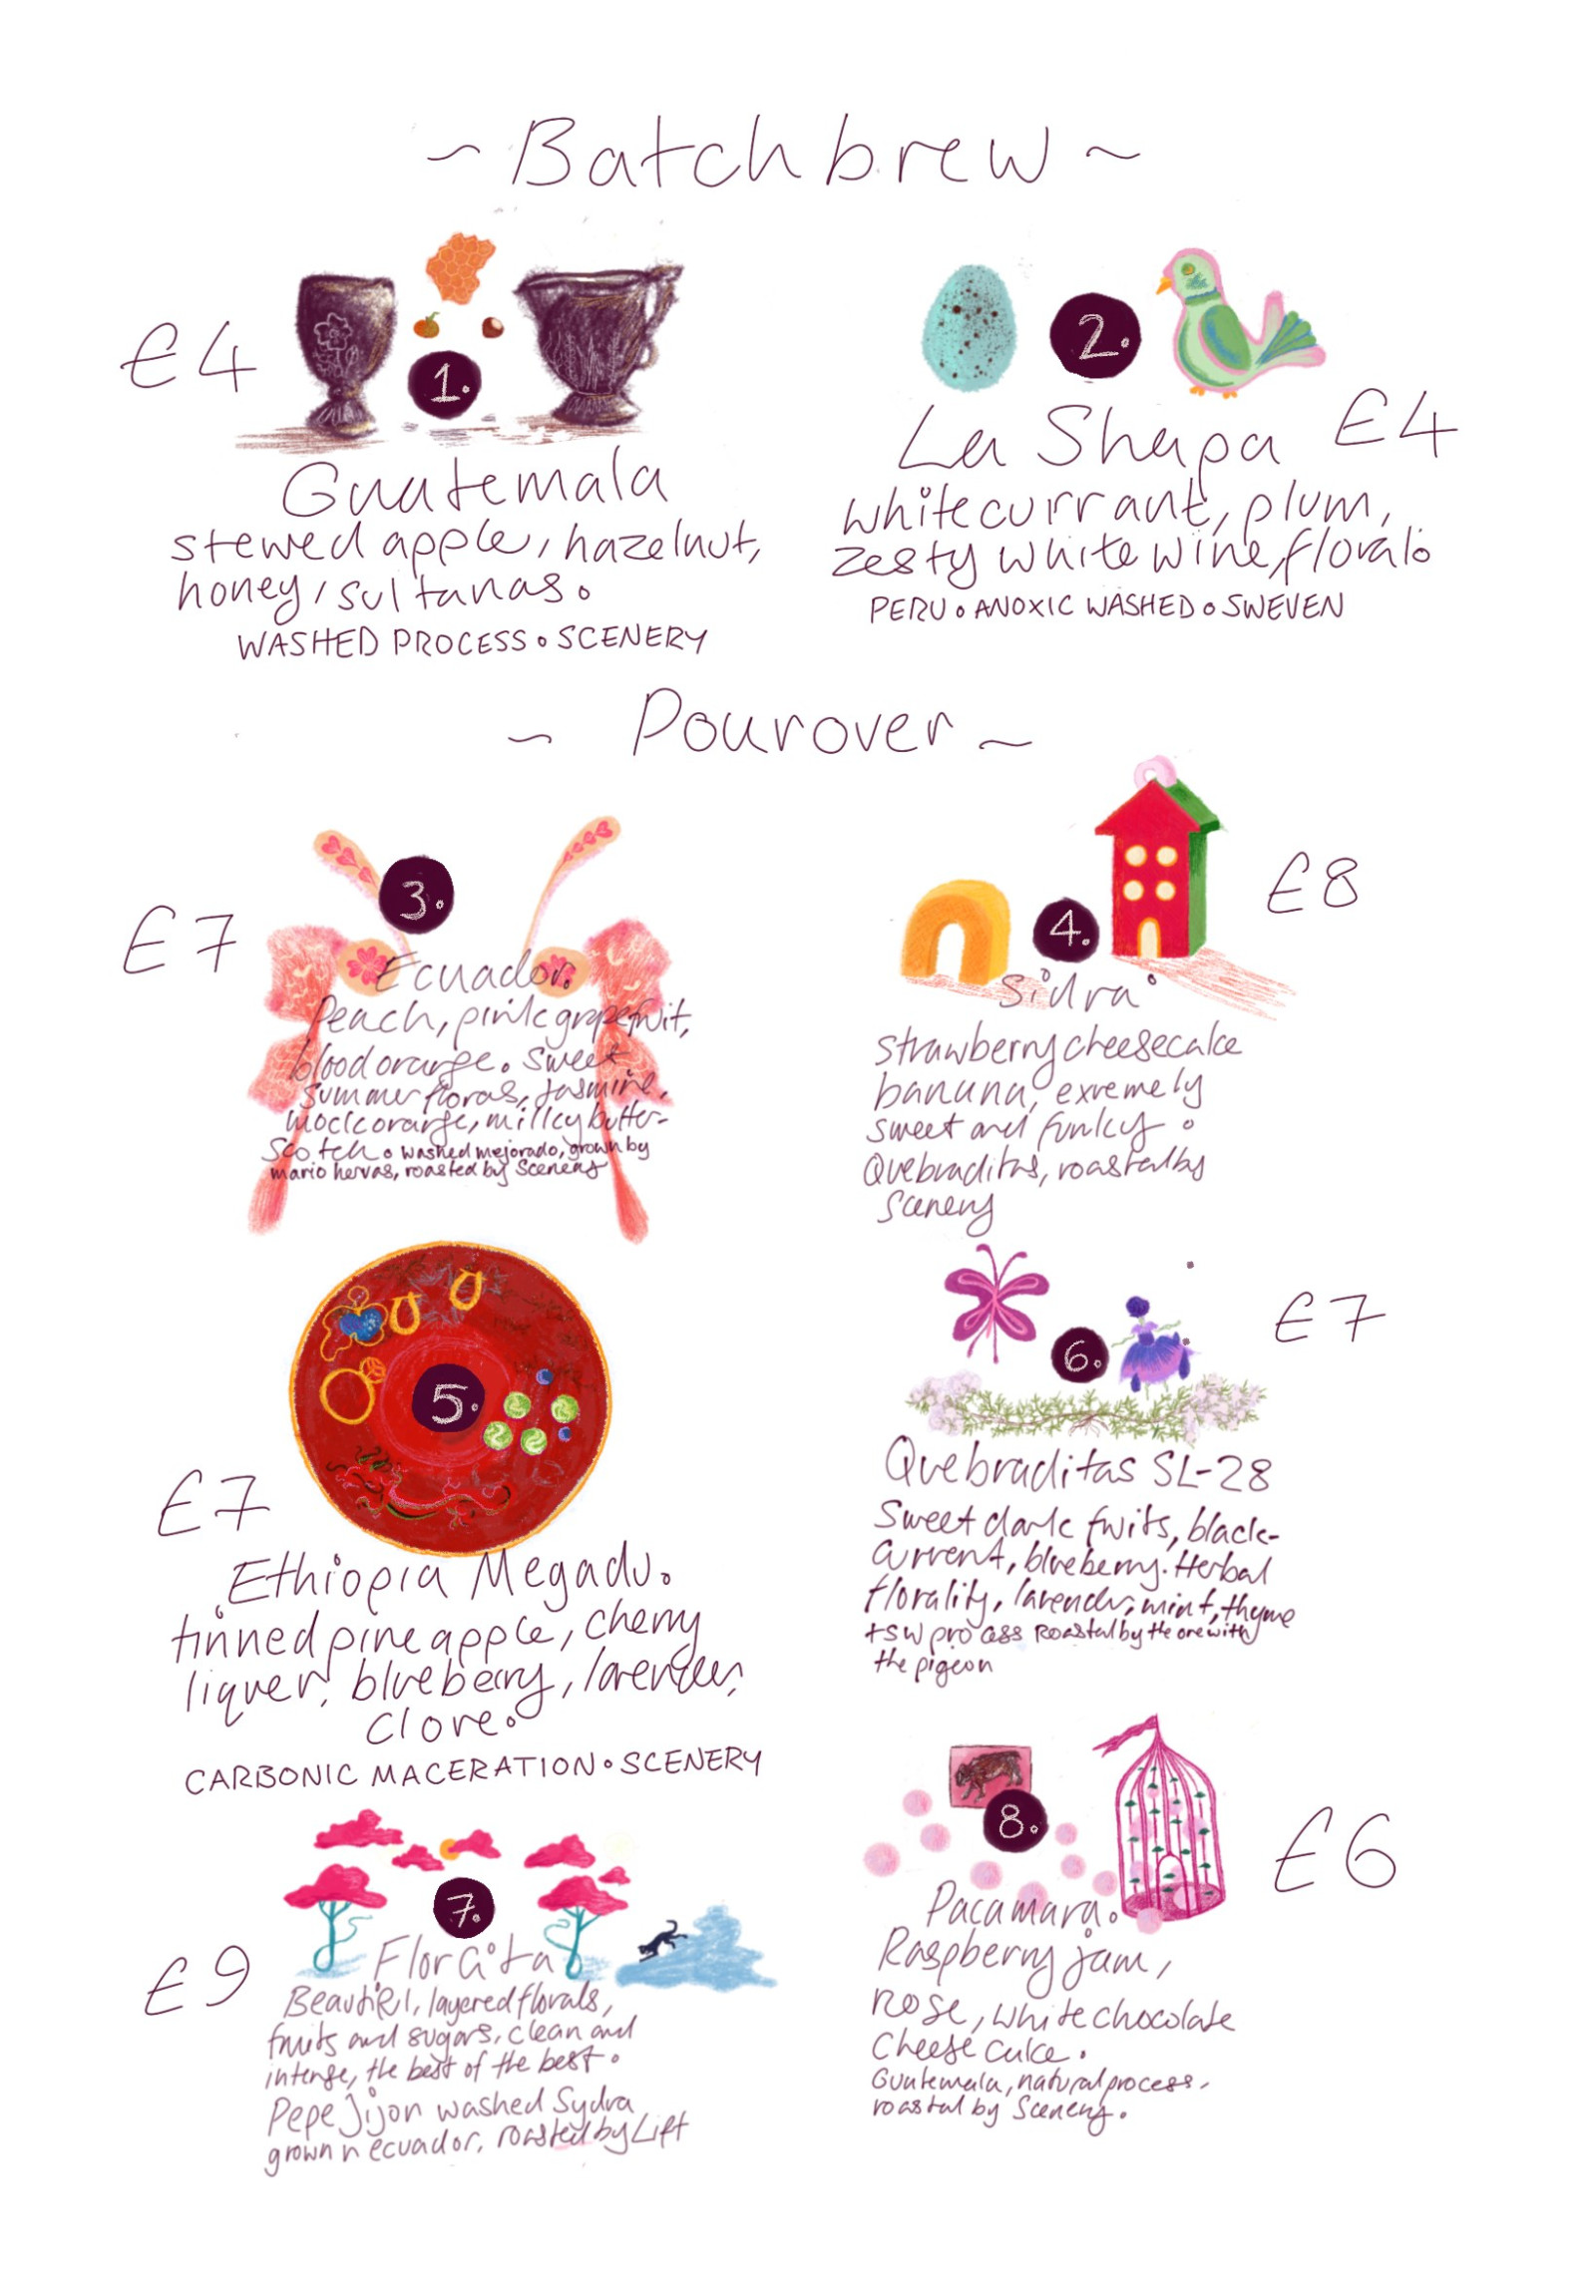 ~ Batch brew ~
£4
1.
Guatemala
stewed apple, hazelnut,
honey, sultanas.
WASHED PROCESS • SCENERY
2.
£4
La Shapa
whitecurrant, plum,
zesty white wine, floral.
PERU • ANOXIC WASHED • SWEVEN
~ Pourover ~
£7
3.
Ecuador.
Peach, pink grapefruit,
blood orange. Sweet
summer florals, Jasmine,
mock orange, milky butter-
scotch. washed mejorado, grown by
mario hervas, roasted by Scenery
4.
£8
Sidra
strawberry cheesecake
banana, exremely
sweet and funky.
Quebraditas, roasted by
Scenery
5.
£7
Ethiopia Megadu.
tinned pineapple, cherry
liquer, blueberry, lavender,
clove.
CARBONIC MACERATION • SCENERY
6.
£7
Quebraditas SL-28
Sweet dark fruits, black-
current, blueberry. Herbal
florality, lavender, mint, thyme
+SW process Roasted by the one with
the pigeon
7.
£9
Florcita
Beautiful, layered florals,
fruits and sugars, clean and
intense, the best of the best.
Pepe Jijon washed Sydra
grown n ecuador, roasted by Lift
8.
£6
Pacamara.
Raspberry jam,
rose, white chocolate
cheese cake.
Guatemala, natural process,
roasted by Scenery.